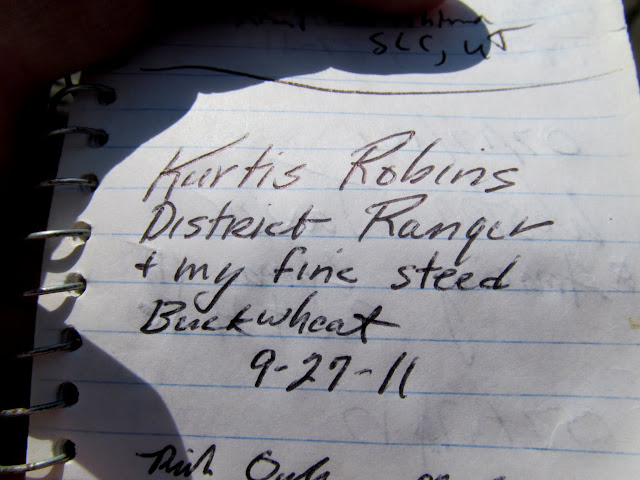 SLC, UT
Kurtis Robins
District Ranger
+ my fine steed
Buckwheat
9-27-11